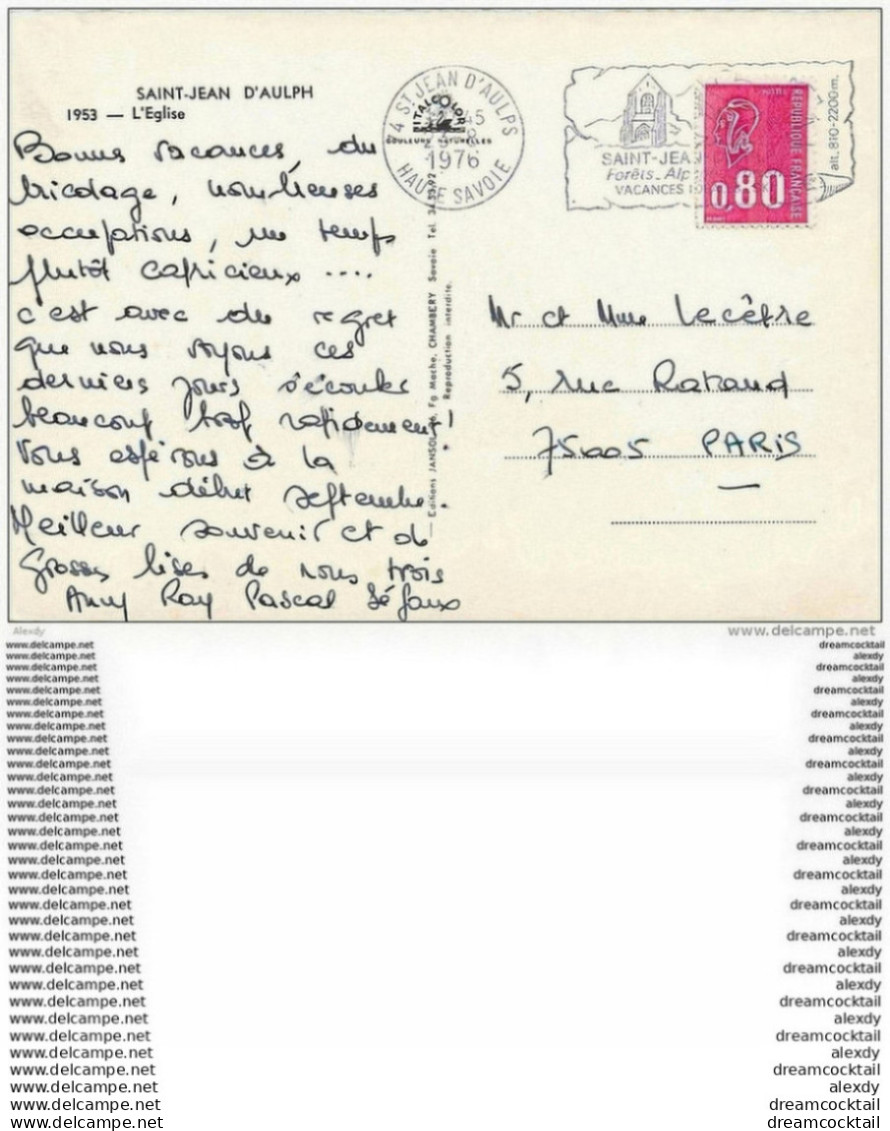 SAINT-JEAN D'AULPH
1953 — L'Eglise
Bonnes vacances, du
bricolage, nombreuses
occupations, un temps
plutôt capricieux ....
c'est avec du regret
que nous voyons ces
derniers jours s'écouler
beaucoup trop rapidement!
Vous espérons à la
maison début septembre.
Meilleur souvenir et de
grosses bises de nous trois
Anny Ray Pascal
74 ST JEAN D'AULPS
ITALCOLOR
COULEURS NATURELLES
45
1976
HAUTE SAVOIE
SAINT-JEA
Forêts. Alp
VACANCES
alt. 810-2200m.
REPUBLIQUE FRANÇAISE
0,80
— Editions JANSOL, Fg Mache, CHAMBERY Savoie Tel.
Reproduction interdite.
Mr et Mme Lecêtre
5, rue Rataud
75005 PARIS
Alexdy
www.delcampe.net
www.delcampe.net dreamcocktail
www.delcampe.net alexdy
www.delcampe.net dreamcocktail
www.delcampe.net alexdy
www.delcampe.net dreamcocktail
www.delcampe.net alexdy
www.delcampe.net dreamcocktail
www.delcampe.net alexdy
www.delcampe.net dreamcocktail
www.delcampe.net alexdy
www.delcampe.net dreamcocktail
www.delcampe.net alexdy
www.delcampe.net dreamcocktail
www.delcampe.net alexdy
www.delcampe.net dreamcocktail
www.delcampe.net alexdy
www.delcampe.net dreamcocktail
www.delcampe.net alexdy
www.delcampe.net dreamcocktail
www.delcampe.net alexdy
www.delcampe.net dreamcocktail
www.delcampe.net alexdy
www.delcampe.net dreamcocktail
www.delcampe.net alexdy
www.delcampe.net dreamcocktail
www.delcampe.net alexdy
www.delcampe.net dreamcocktail
www.delcampe.net alexdy
www.delcampe.net dreamcocktail
www.delcampe.net alexdy
www.delcampe.net dreamcocktail
www.delcampe.net alexdy
www.delcampe.net dreamcocktail
www.delcampe.net dreamcocktail